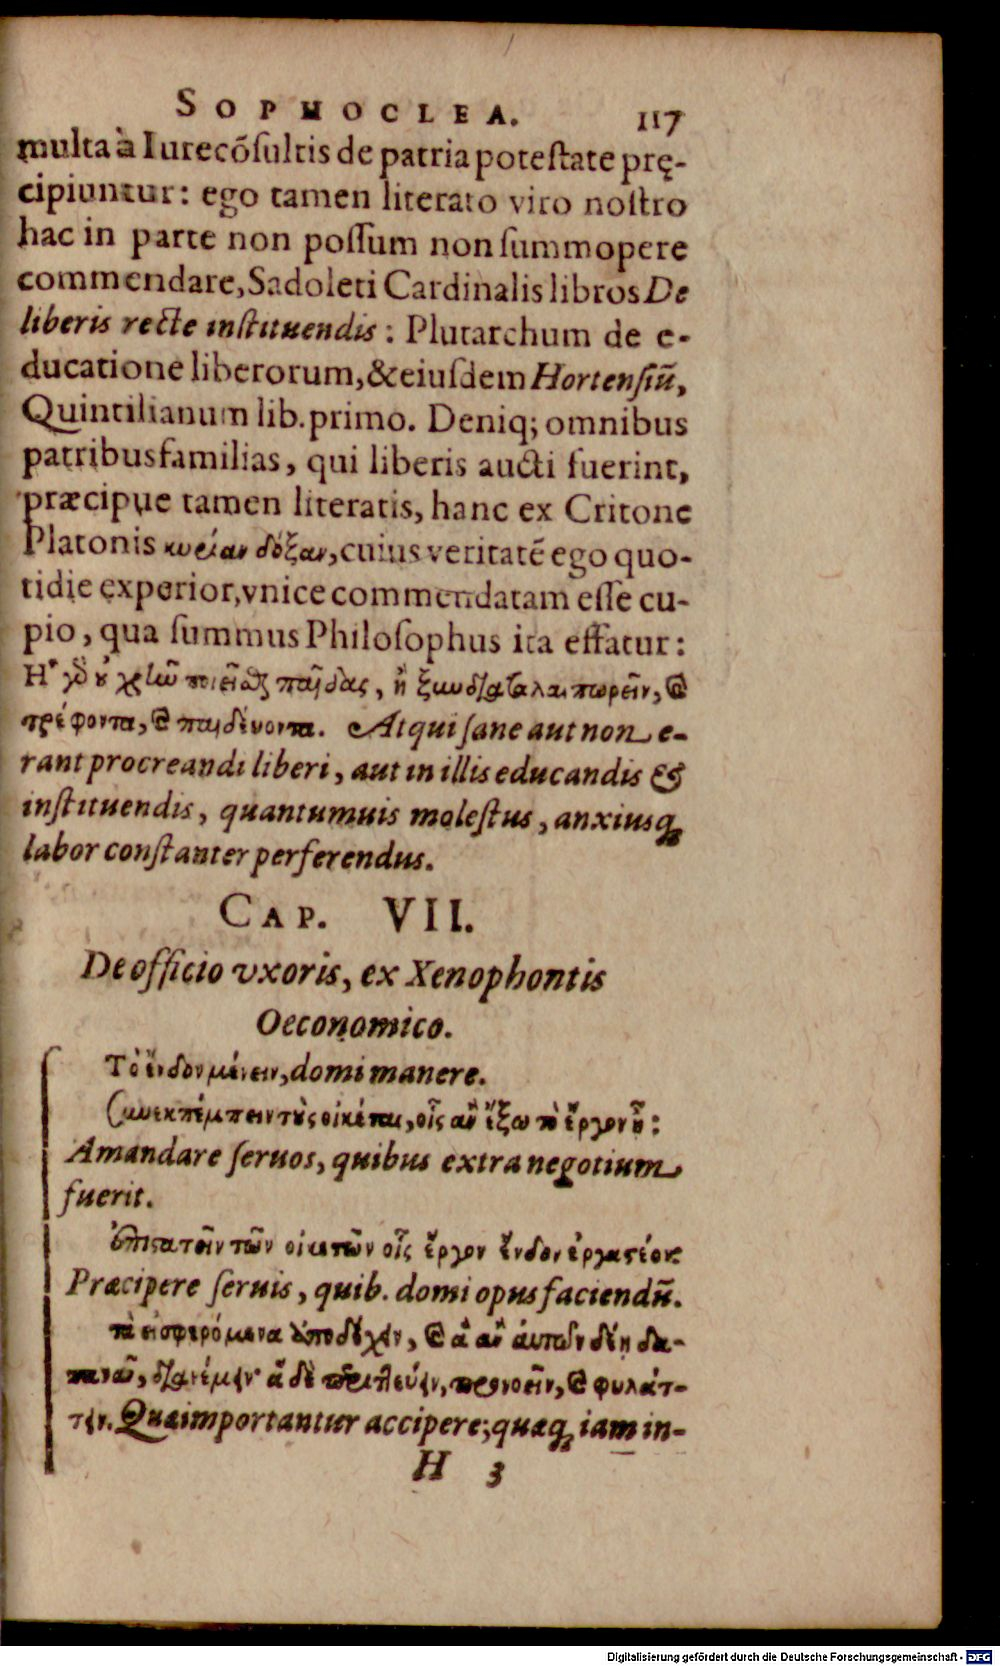 SOPHOCLEA. 117
multa à Iurecōsultis de patria potestate prę-
cipiuntur: ego tamen literato viro nostro
hac in parte non possum non summopere
commendare, Sadoleti Cardinalis libros De
liberis recte instituendis: Plutarchum de e-
ducatione liberorum, & eiusdem Hortensiū,
Quintilianum lib. primo. Deniq; omnibus
patribusfamilias, qui liberis aucti fuerint,
præcipue tamen literatis, hanc ex Critone
Platonis κυρίαν δόξαν, cuius veritatē ego quo-
tidie experior, vnice commendatam esse cu-
pio, qua summus Philosophus ita effatur:
Ἢ γὸ οὐ χρῆν ποιεῖσθαι παῖδας, ἢ ξυνδιαταλαιπωρεῖν, καὶ
τρέφοντα, καὶ παιδεύοντα. Atqui sane aut non e-
rant procreandi liberi, aut in illis educandis &
instituendis, quantumuis molestus, anxiusq;
labor constanter perferendus.
CAP. VII.
De officio vxoris, ex Xenophontis
Oeconomico.
Τὸ ἔνδον μένειν, domi manere.
Συνεκπέμπειν τοὺς οἰκέτας, οἷς ἂν ἔξω τὸ ἔργον ᾖ:
Amandare seruos, quibus extra negotium
fuerit.
ἐπιστατεῖν τῶν οἰκετῶν οἷς ἔργον ἔνδον ἐργαστέον:
Præcipere seruis, quib. domi opus faciendū.
τὰ εἰσφερόμενα ἀποδέχειν, καὶ ἃ ἂν αὐτῶν δέῃ δα-
πανᾶν, διανέμειν· ἃ δὲ περιττεύειν, προνοεῖν, καὶ φυλάτ-
τειν. Quæ importantur accipere; quæq; iam in-
H 3
Digitalisierung gefördert durch die Deutsche Forschungsgemeinschaft - DFG